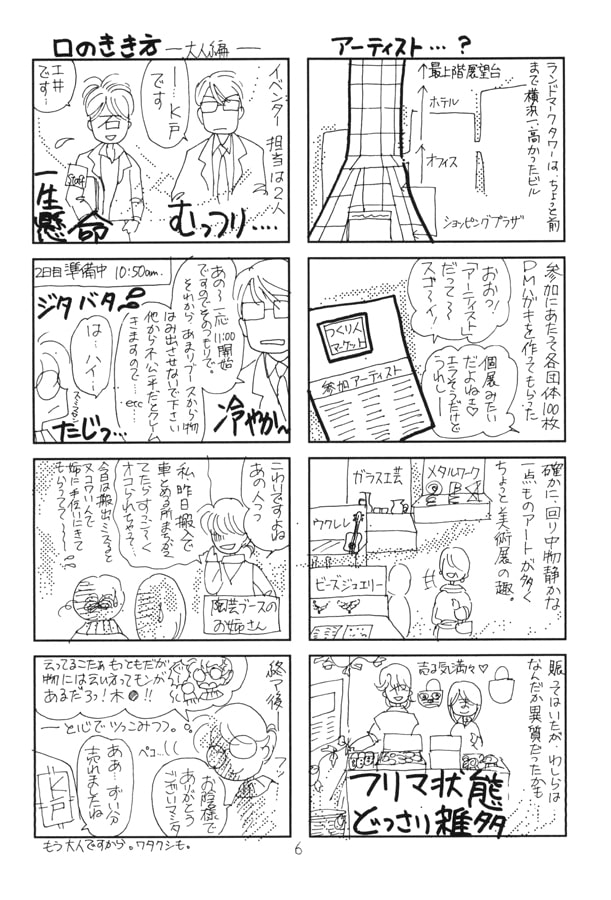 アーティスト…？
ランドマークタワーは、ちょっと前
まで横浜一、高かったビル
↑最上階展望台
ホテル
↑オフィス
ショッピングプラザ
参加にあたって各団体100枚
DMハガキを作ってもらった
おおっ!
「アーティスト」
だって〜
スゴーイ!
つくり人
マーケット
参加アーティスト
個展みたい
だよねェ♡
エラそうだけど
うれしー
確かに、回り中物静かな、
一点ものアートが多く
ちょっと美術展の趣。
ガラス工芸
メタルワーク
ウクレレ
ビーズジュエリー
賑ってはいたが、わしらは
なんだか異質だったかも…
売る気満々♡
フリマ状態
どっさり雑多
口のきき方 ―大人編―
イベンター担当は2人
―K戸
です
工井…
です…
Staff
一生懸命
むっつり‥‥
2日目準備中 10:50am.
あの〜一応11:00開始
ですのでそのつもりで
それから あまりブースから物
はみ出させないで下さい
他から不公平だとクレーム
きますので…
etc
ジタバタ
は…ハイ…
たじっ…
冷やか〜
こわいですよね
あの人っっ
私、昨日搬入で
車とめる所まちがっ
てたらすっごーく
オコられちゃって…
今日は搬出ミスると
又コワいんで
姉に手伝いにきて
もらってて〜
陶芸ブースの
お姉さん
云ってるこたぁもっともだが
物には云い方ってモンが
あるだろっ!木●!!
―と心でツッこみつつ。
終了後―
ペコ…
お陰様で
ありがとう
ございマシタ
ああ…ずい分
売れましたね
K戸
もう大人ですから。ワタクシも。
6